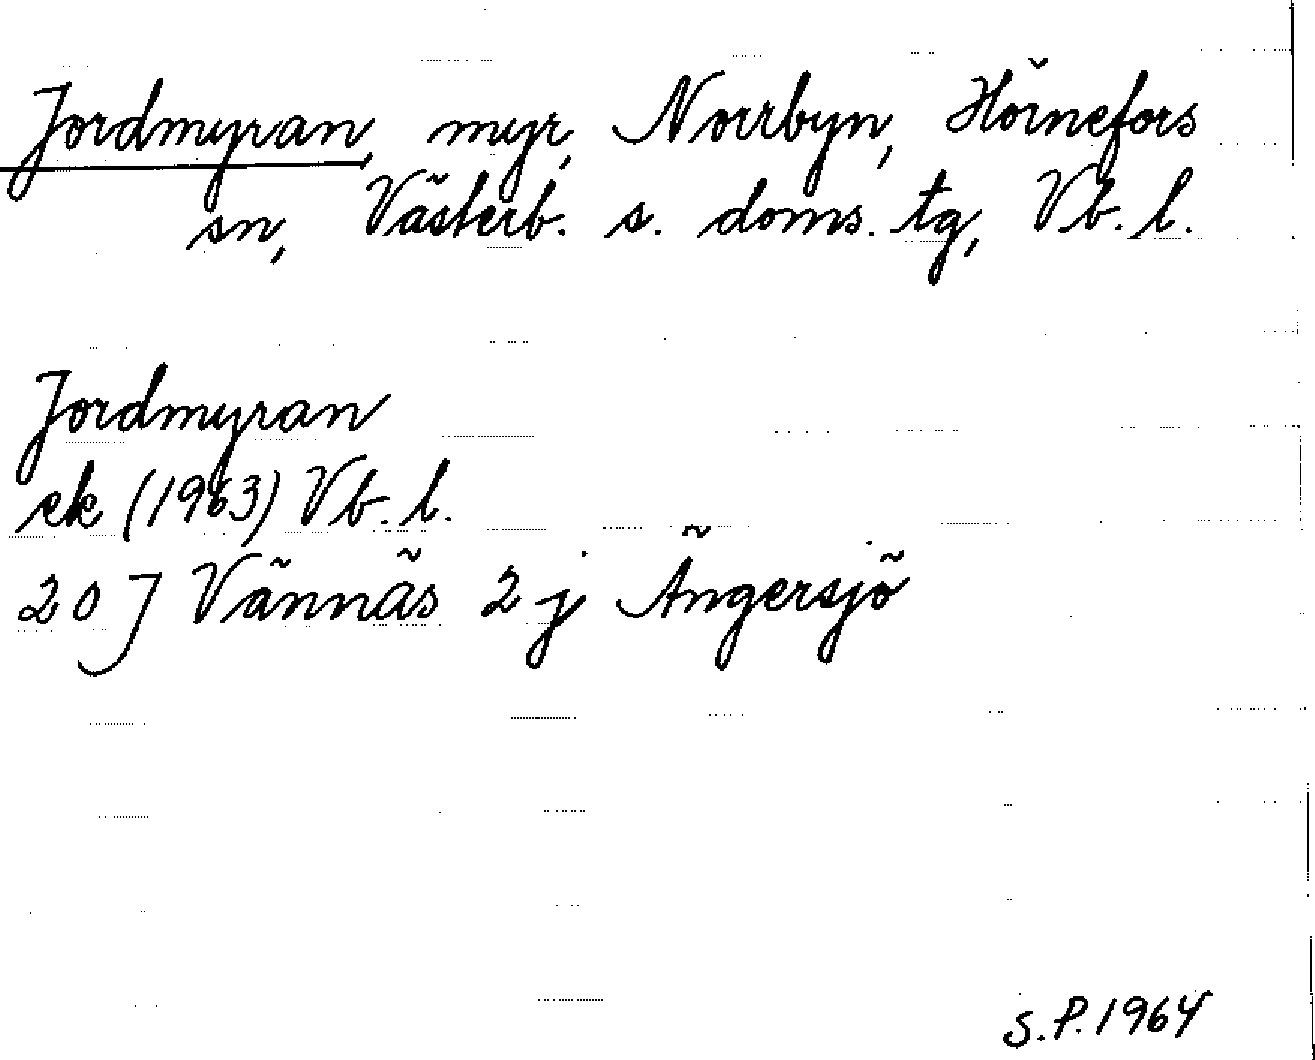 Jordmyran, myr, Norrbyn, Hörnefors
sn, Västerb. s. doms. tg, Vb. l.
Jordmyran
ek (1963) Vb. l.
20 J Vännäs 2 j Ängersjö
S.P. 1964